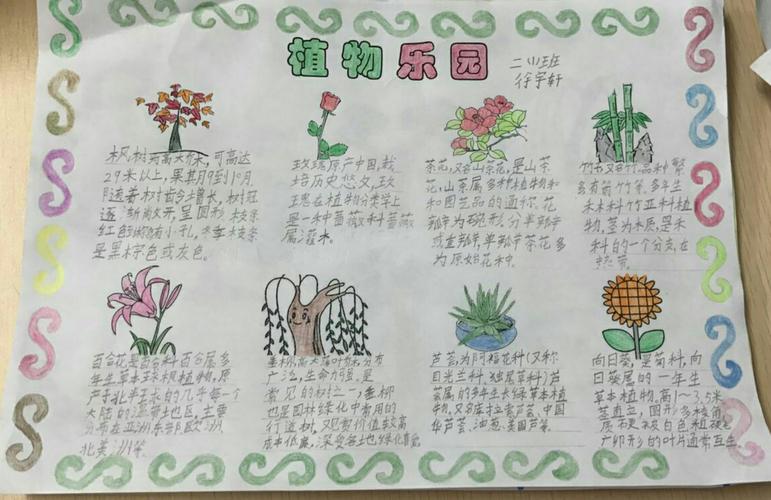 植物乐园
二小班
徐宇轩
枫树为高大乔木，可高达
29米以上，果其月9到10月
随着树龄增长，树冠
逐渐敞开，呈圆形 枝条
红色 有小孔，冬季枝条
是黑棕色或灰色。
玫瑰原产中国，栽
培历史悠久，玫
瑰在植物分类学上
是一种蔷薇科蔷薇
属灌木。
茶花，又名山茶花，是山茶
花，山茶属多种植物和
和园艺品的通称，花
瓣为碗形，分单瓣
或重瓣，单瓣茶花多
为原始花种。
竹 又名竹 品种繁
多有箭竹等，多年生
禾本科竹亚科植
物，茎为木质，是禾
科的一个分支，在
热带
百合花是百合科百合属多
年生草本球根植物，原
产于北半球的几乎每一个
大陆的温带地区，主要
分布在亚洲东部 欧洲
北美洲等。
垂柳，高大落叶 分布
广泛，生命力强，是
常见的树之一，垂柳
也是园林绿化中常用的
行道树，观赏价值较高
成本低廉，深受各地绿化喜爱
芦荟，为阿福花科（又称
日光兰科、独尾草科）芦
荟属的多年生常绿草本植
物，又名库拉索芦荟、中国
华芦荟、油葱、美国芦荟。
向日葵，是菊科，向
日葵属的一年生
草本植物，高1～3.5米
茎直立，圆形多棱角
质 被白色粗硬毛
广卵形的叶片通常互生